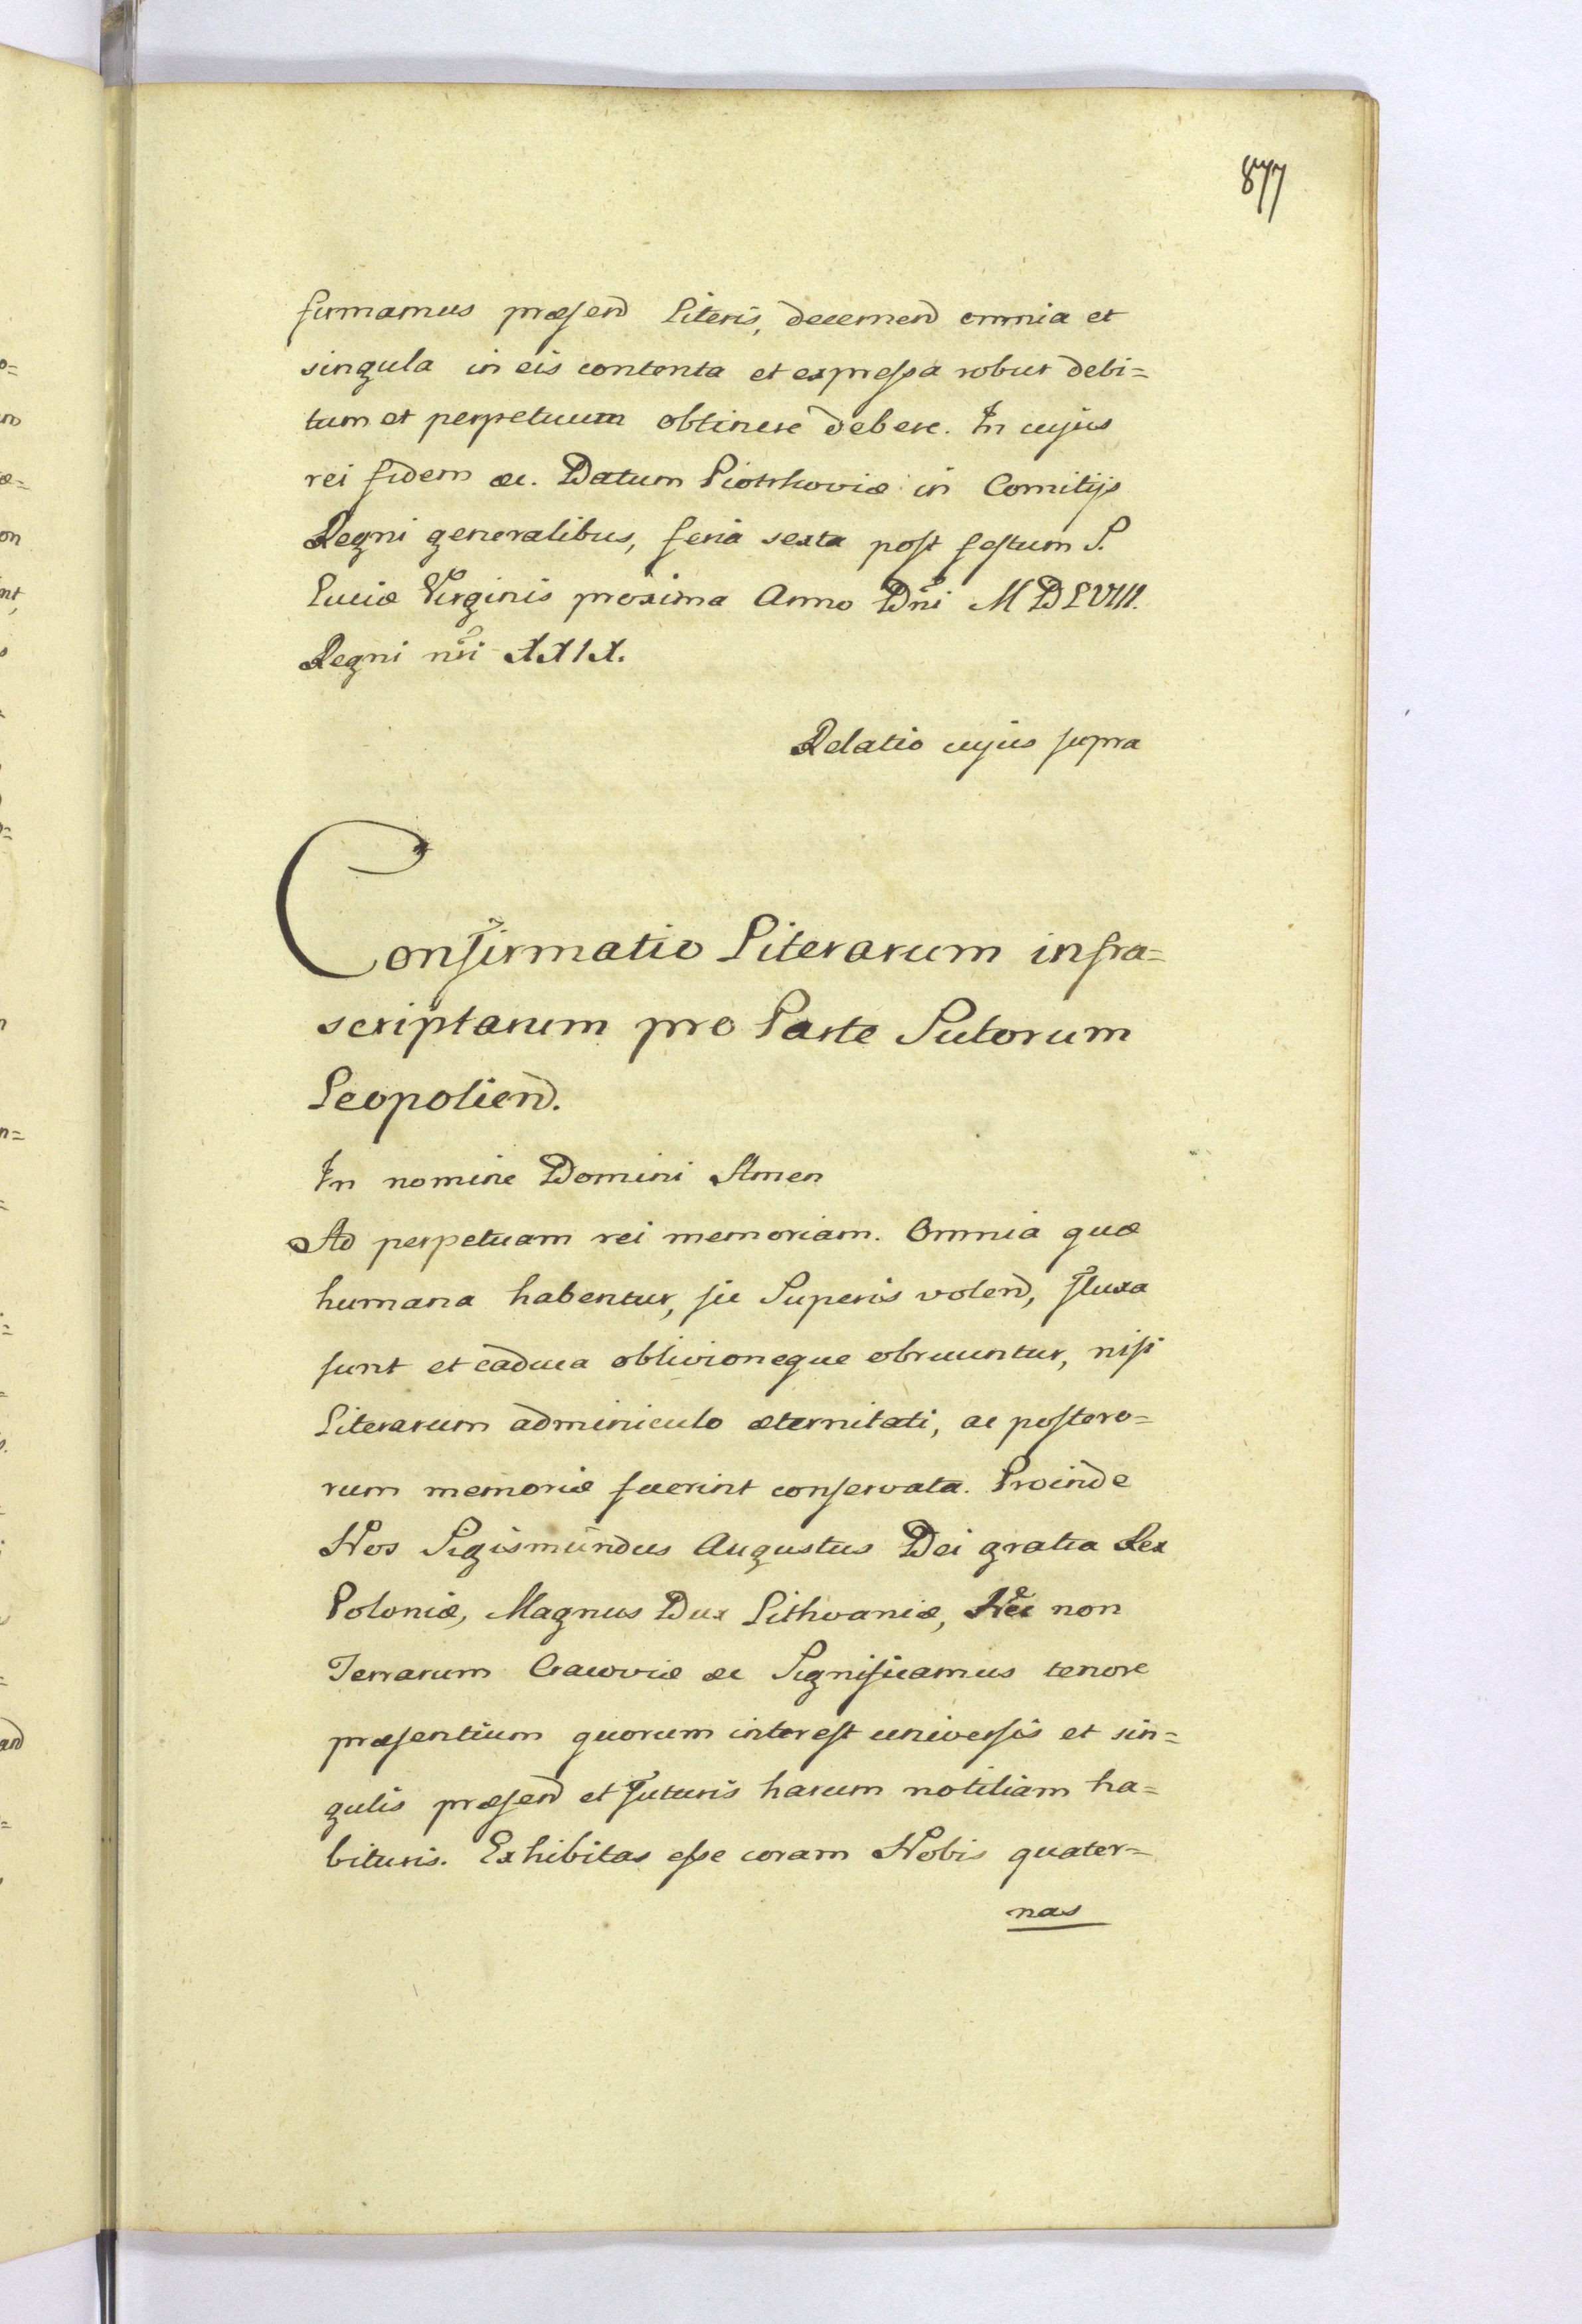 877
firmamus præsend Literis, decernend omnia et
singula in eis contenta et expressa robur debi=
tum et perpetuum obtinere debere. In cujus
rei fidem &c. Datum Piotrkoviæ in Comitijs
Regni generalibus, feria sexta post festum S.
Luciæ Virginis proxima Anno Dni MDLVIII.
Regni nri XXIX.
Relatio cujus supra
Confirmatio Literarum infra=
scriptarum pro Parte Sutorum
Leopoliend.
In nomine Domini Amen
Ad perpetuam rei memoriam. Omnia quæ
humana habentur, sic Superis volend, fluxa
sunt et caduca oblivioneque obruuntur, nisi
Literarum adminiculo æternitati, ac postero=
rum memoriæ fuerint conservata. Proinde
Nos Sigismundus Augustus Dei gratia Rex
Poloniæ, Magnus Dux Lithvaniæ, Nec non
Terrarum Cracoviæ &c Significamus tenore
præsentium quorum interest universis et sin=
gulis præsend et futuris harum notitiam ha=
bituris. Exhibitas esse coram Nobis quater=
nas